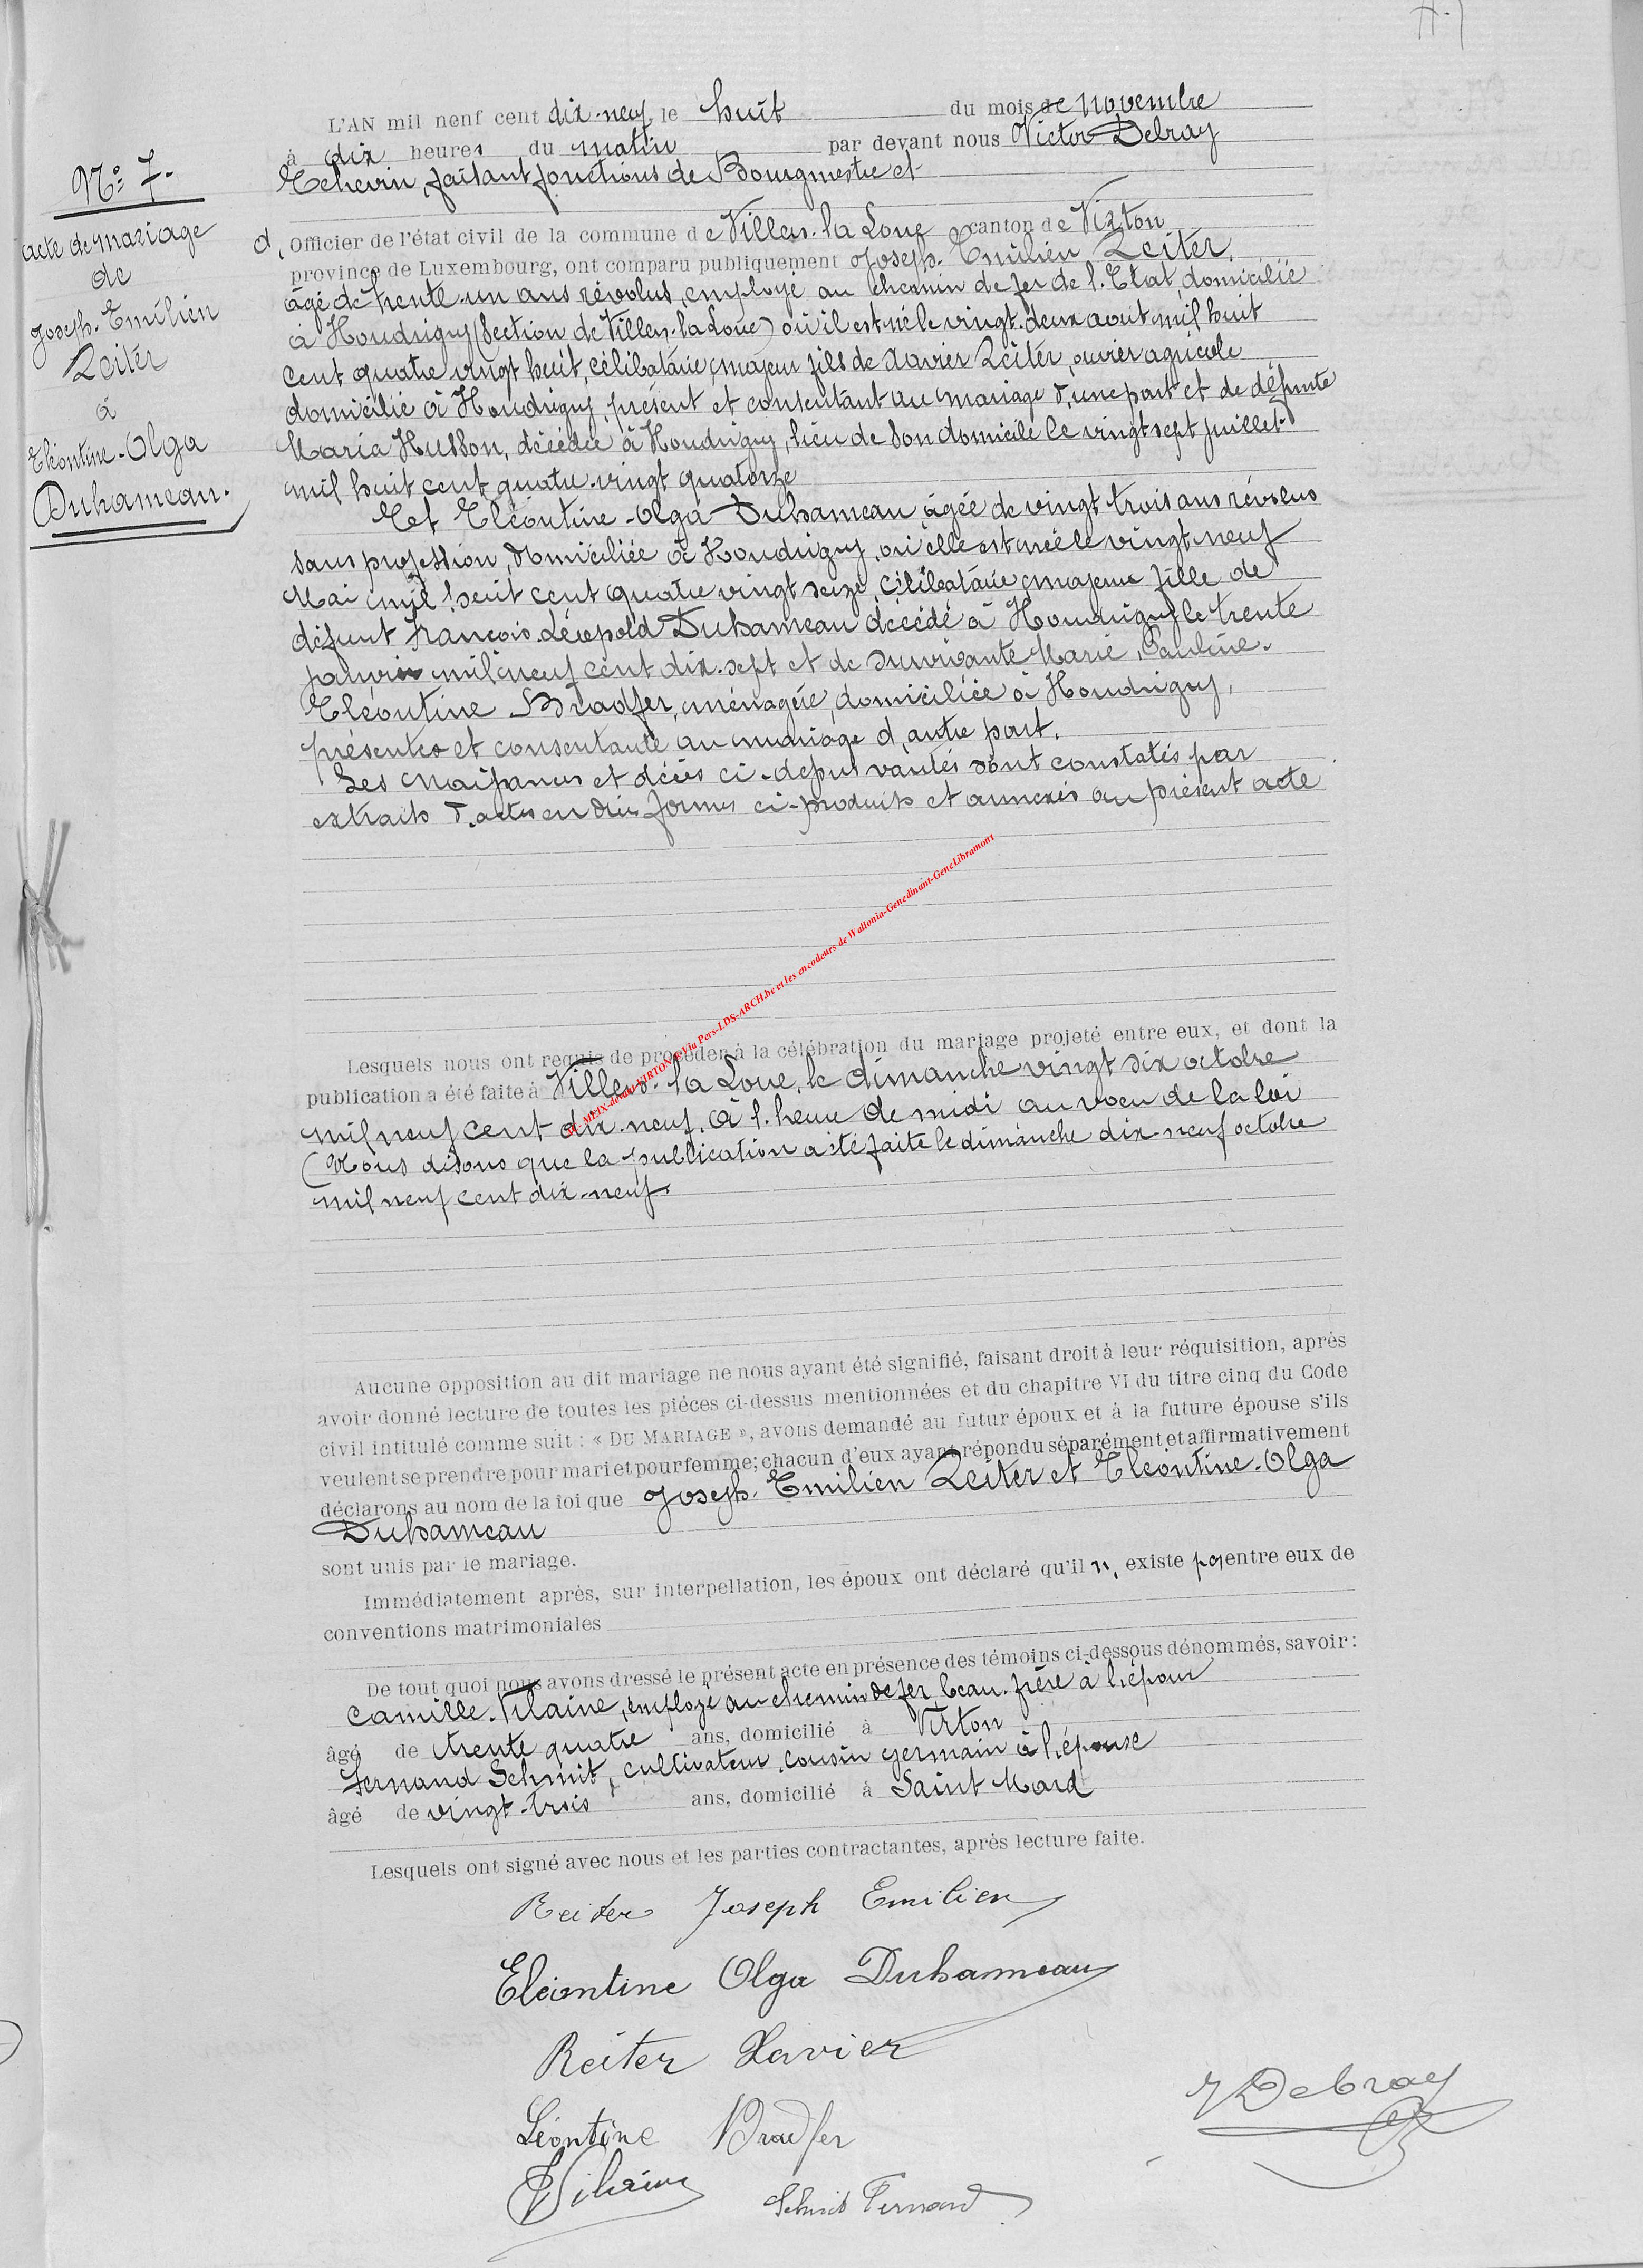 N° 7.
acte de mariage
de
Joseph-Emilien
Reiter
à
Eléontine-Olga
Duhameau.
L'AN mil neuf cent dix-neuf, le huit du mois de novembre
à dix heures du matin par devant nous Victor Debray
Echevin, faisant fonctions de Bourgmestre et
d'Officier de l'état civil de la commune de Villers-la-Loue canton de Virton
province de Luxembourg, ont comparu publiquement Joseph-Emilien Reiter,
âgé de trente-un ans révolus, employé au chemin de fer de l'Etat, domicilié
à Houdrigny (Section de Villers-la-Loue) où il est né le vingt-deux août mil huit
cent quatre vingt huit, célibataire, majeur fils de Xavier Reiter, ouvrier agricole
domicilié à Houdrigny, présent et consentant au mariage d'une part et de défunte
Maria Husson, décédée à Houdrigny, lieu de son domicile le vingt sept juillet
mil huit cent quatre-vingt quatorze
Et Eléontine-Olga Duhameau, âgée de vingt trois ans révolus
sans profession, domiciliée à Houdrigny, où elle est née le vingt-neuf
Mai mil huit cent quatre vingt seize, célibataire, majeure fille de
défunt François-Léopold Duhameau décédé à Houdrigny le trente
janvier mil neuf cent dix-sept et de survivante Marie, Pauline-
Eléontine Bradfer, ménagère, domiciliée à Houdrigny,
présente et consentante au mariage d'autre part.
Les naissances et décès ci-dessus vantés sont constatés par
extraits d'actes en dues formes ci-produits et annexés au présent acte
MEIX-devant-VIRTON Via Pers-LDS-ARCH.be et les encodeurs de Wallonia-Genedinant-GeneLibramont
Lesquels nous ont requis de procéder à la célébration du mariage projeté entre eux, et dont la
publication a été faite à Villers-la-Loue, le dimanche vingt six octobre
mil neuf cent dix-neuf, à l'heure de midi au voeu de la loi
(Nous disons que la publication a été faite le dimanche dix-neuf octobre
mil neuf cent dix-neuf.
Aucune opposition au dit mariage ne nous ayant été signifié, faisant droit à leur réquisition, après
avoir donné lecture de toutes les pièces ci-dessus mentionnées et du chapitre VI du titre cinq du Code
civil intitulé comme suit : « DU MARIAGE », avons demandé au futur époux et à la future épouse s'ils
veulent se prendre pour mari et pour femme; chacun d'eux ayant répondu séparément et affirmativement
déclarons au nom de la loi que Joseph-Emilien Reiter et Eléontine-Olga
Duhameau
sont unis par le mariage.
Immédiatement après, sur interpellation, les époux ont déclaré qu'il n'existe pas entre eux de
conventions matrimoniales
De tout quoi nous avons dressé le présent acte en présence des témoins ci-dessous dénommés, savoir :
Camille-Vilaine, employé au chemin de fer, beau-frère à l'époux
âgé de trente quatre ans, domicilié à Virton
Fernand Schmit, cultivateur, cousin germain à l'épouse
âgé de vingt-trois ans, domicilié à Saint Mard
Lesquels ont signé avec nous et les parties contractantes, après lecture faite.
Reiter Joseph Emilien
Eléontine Olga Duhameau
Reiter Xavier
Léontine Bradfer
VDebray
Vilaine Schmit Fernand